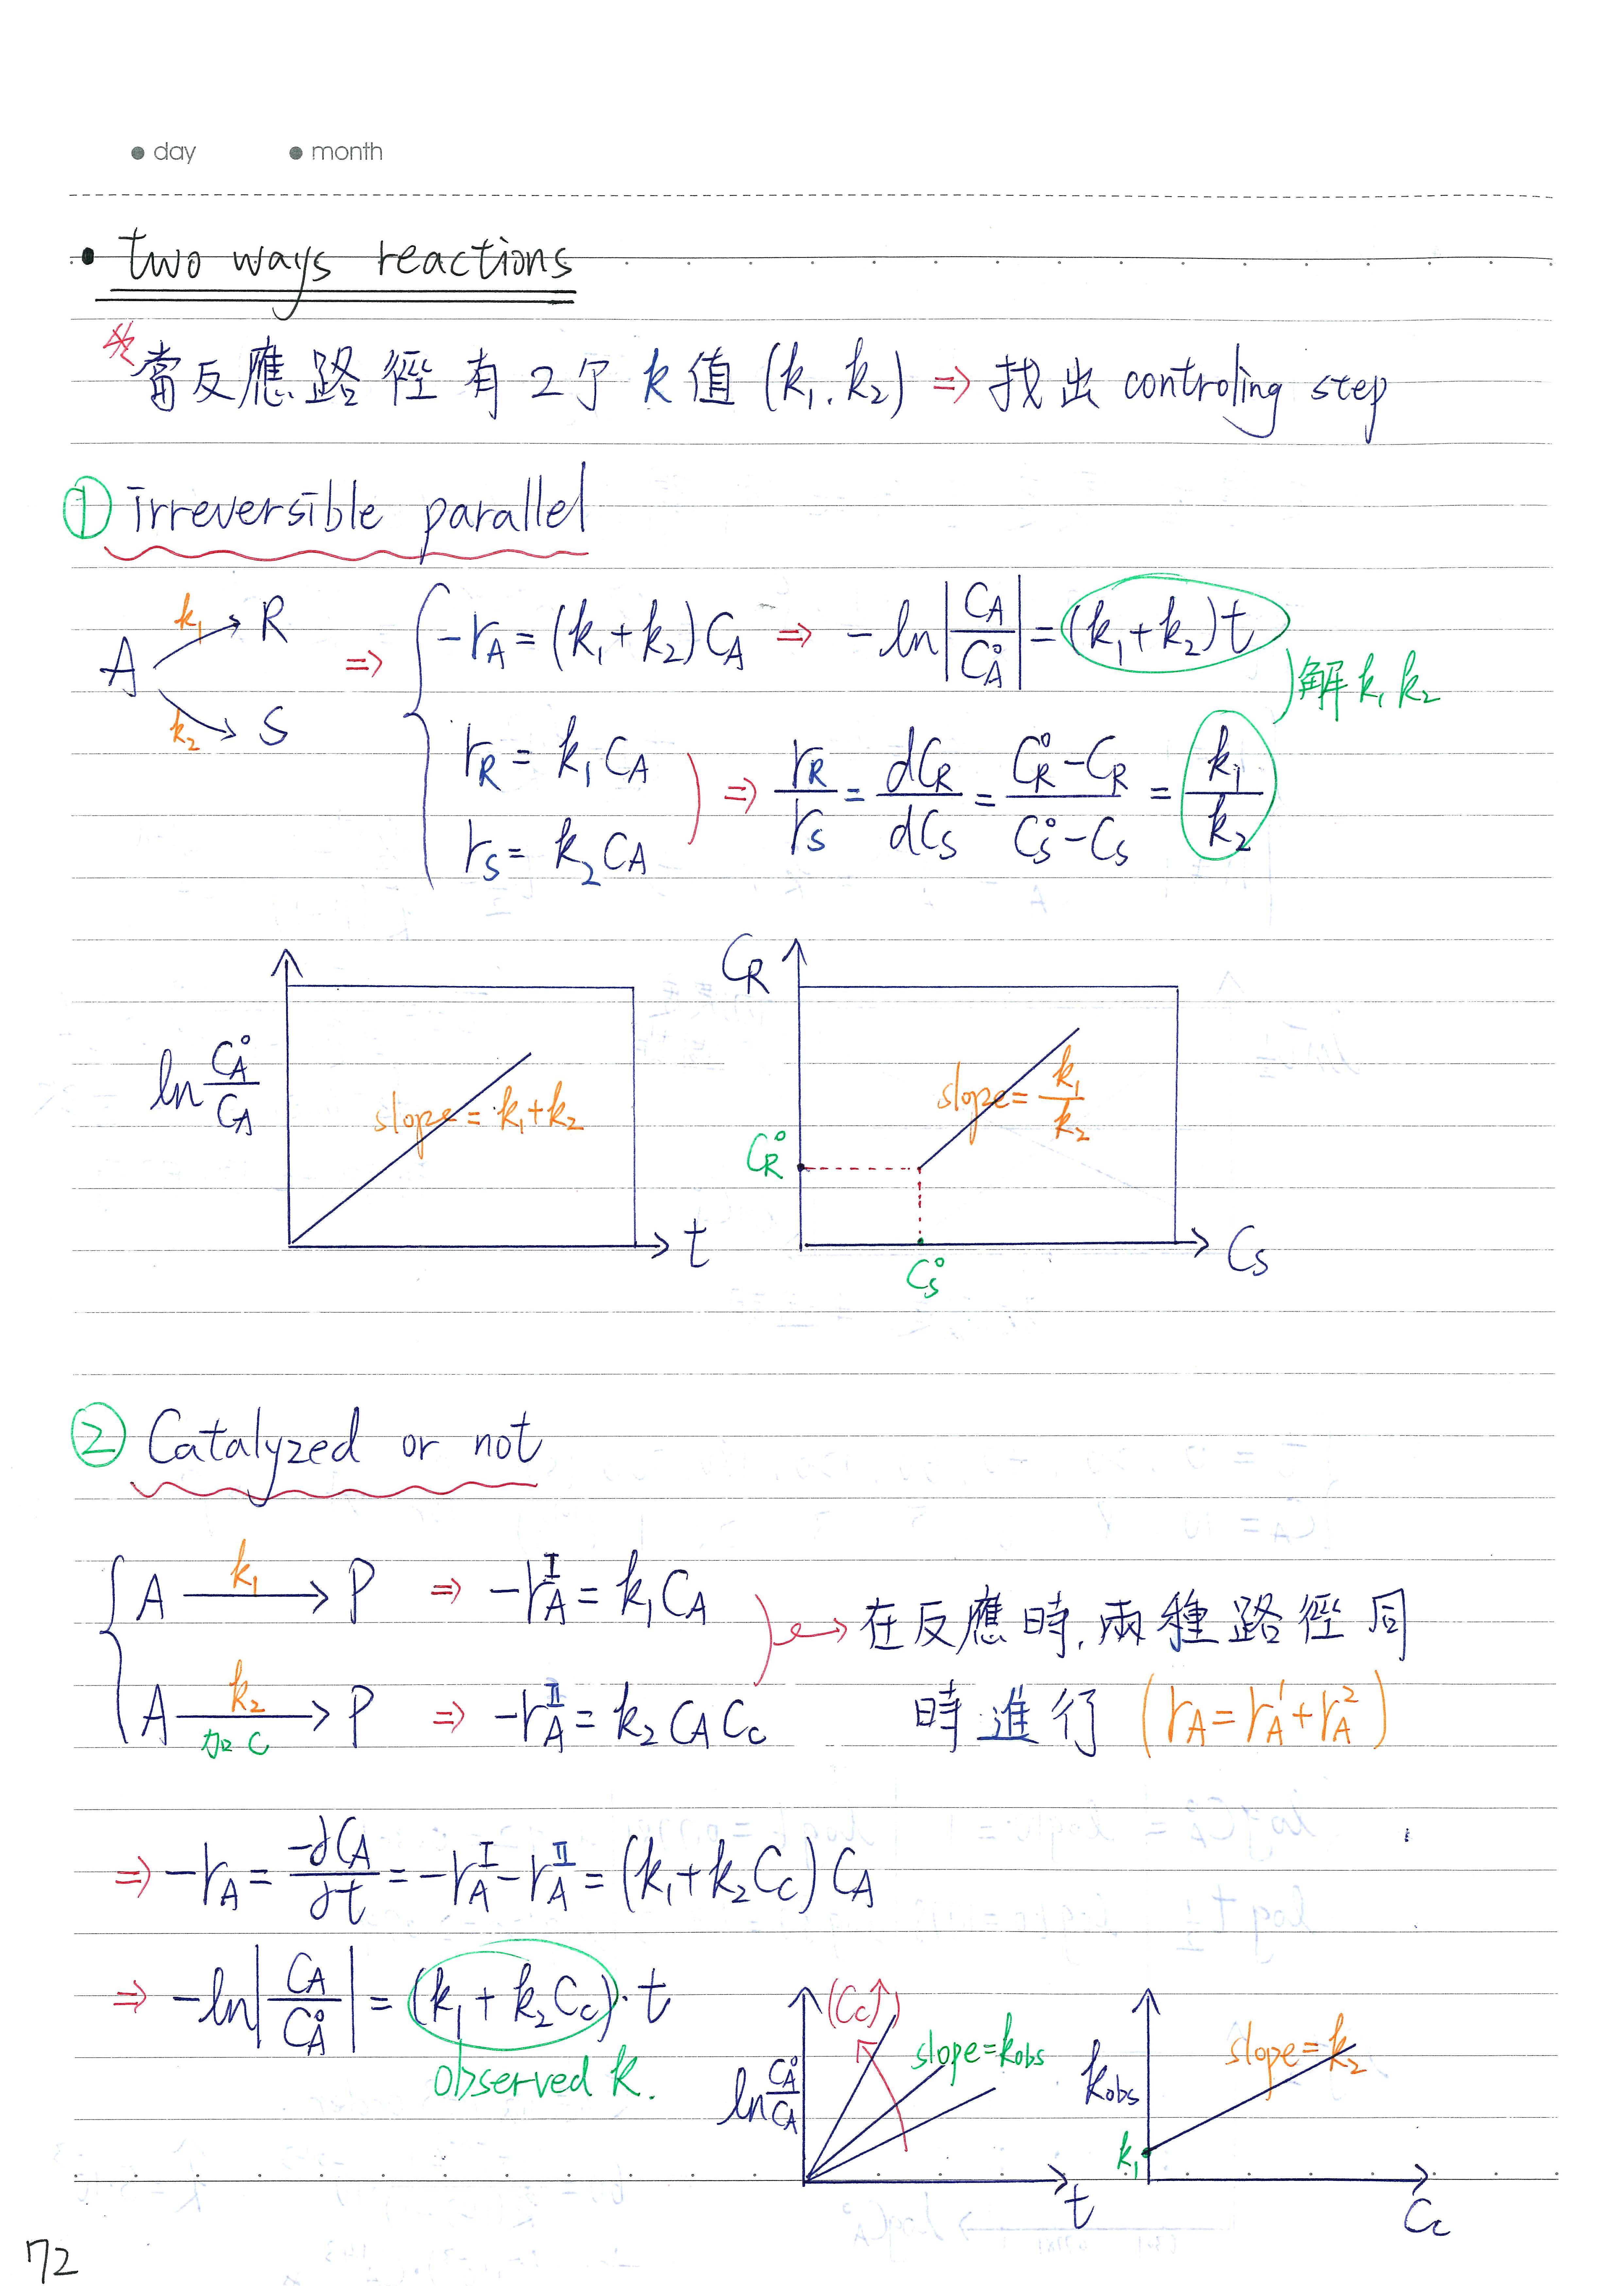 ● day ● month
• two ways reactions
※當反應路徑有2个k值(k₁.k₂) ⇒ 找出 controling step
① irreversible parallel
A →(k₁) R
A →(k₂) S
⇒ { -r_A = (k₁+k₂)C_A ⇒ -ln|C_A/C_A°| = (k₁+k₂)t
r_R = k₁C_A
r_S = k₂C_A
⇒ r_R/r_S = dC_R/dC_S = (C_R°-C_R)/(C_S°-C_S) = k₁/k₂
解k₁k₂
ln C_A°/C_A
slope = k₁+k₂
t
C_R
slope = k₁/k₂
C_R°
C_S°
C_S
② Catalyzed or not
A →(k₁) P ⇒ -r_A^I = k₁C_A
A →(k₂ 加C) P ⇒ -r_A^II = k₂C_AC_C
→ 在反應時,兩種路徑同
時進行 (r_A = r_A^1 + r_A^2)
⇒ -r_A = -dC_A/dt = -r_A^I - r_A^II = (k₁+k₂C_C)C_A
⇒ -ln|C_A/C_A°| = (k₁+k₂C_C)·t
observed k.
(C_C↑)
slope=k_obs
ln C_A°/C_A
t
k_obs
slope=k₂
k₁
C_C
72